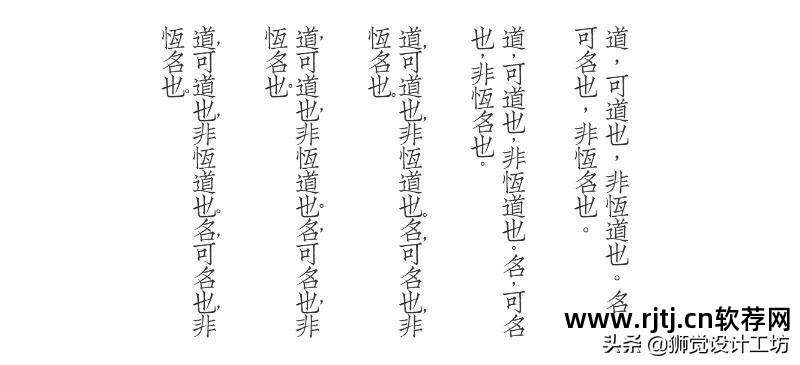 道，可道也，非恆道也。名
可名也，非恆名也。
道，可道也，非恆道也。名，可名
也，非恆名也。
道，可道也，非恆道也。名，可名也，非
恆名也。
道，可道也，非恆道也。名，可名也，非
恆名也。
道，可道也，非恆道也。名，可名也，非
恆名也。
www.rjtj.cn软荐网
头条 @狮觉设计工坊